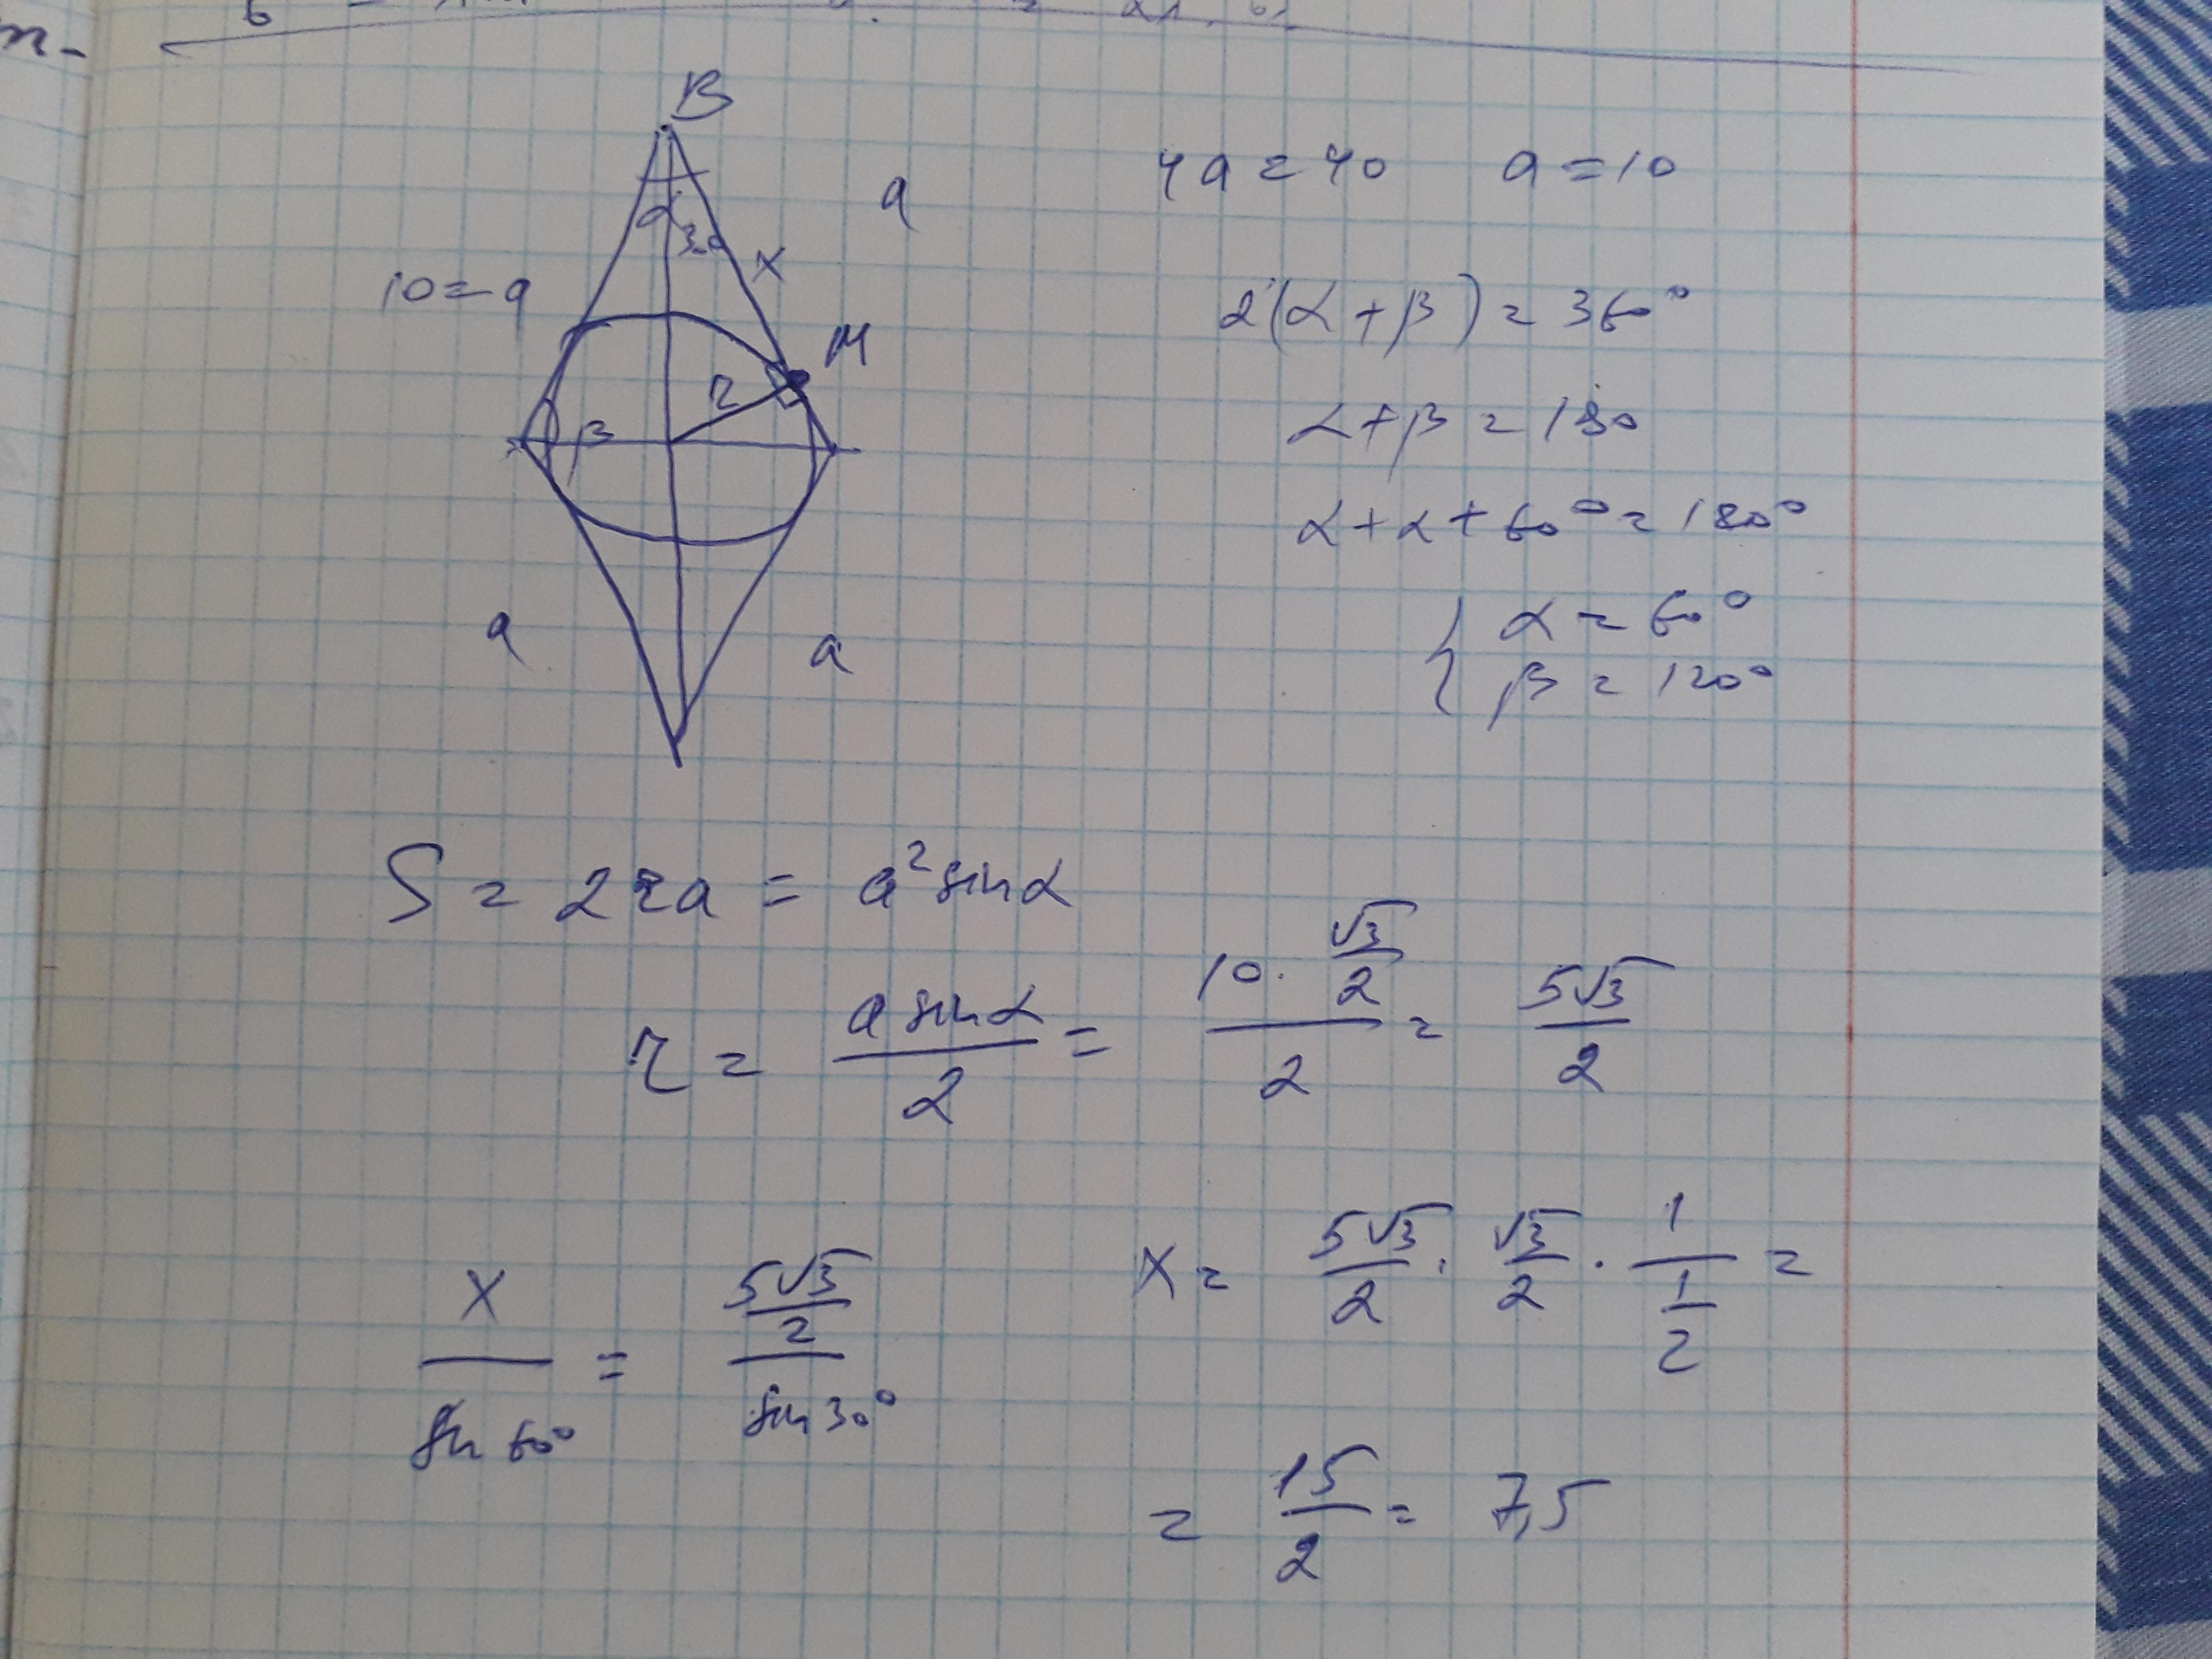 B
4a = 40 a = 10
a
α
30
x
10 = a
2(α + β) = 360°
M
r
β
α + β = 180
α + α + 60° = 180°
α = 60°
β = 120°
a
a
S = 2ra = a² sin α
r = a sin α / 2 = 10 · √3/2 / 2 = 5√3 / 2
x / sin 60° = 5√3/2 / sin 30°
x = 5√3/2 · √3/2 · 1 / 1/2 =
= 15/2 = 7,5